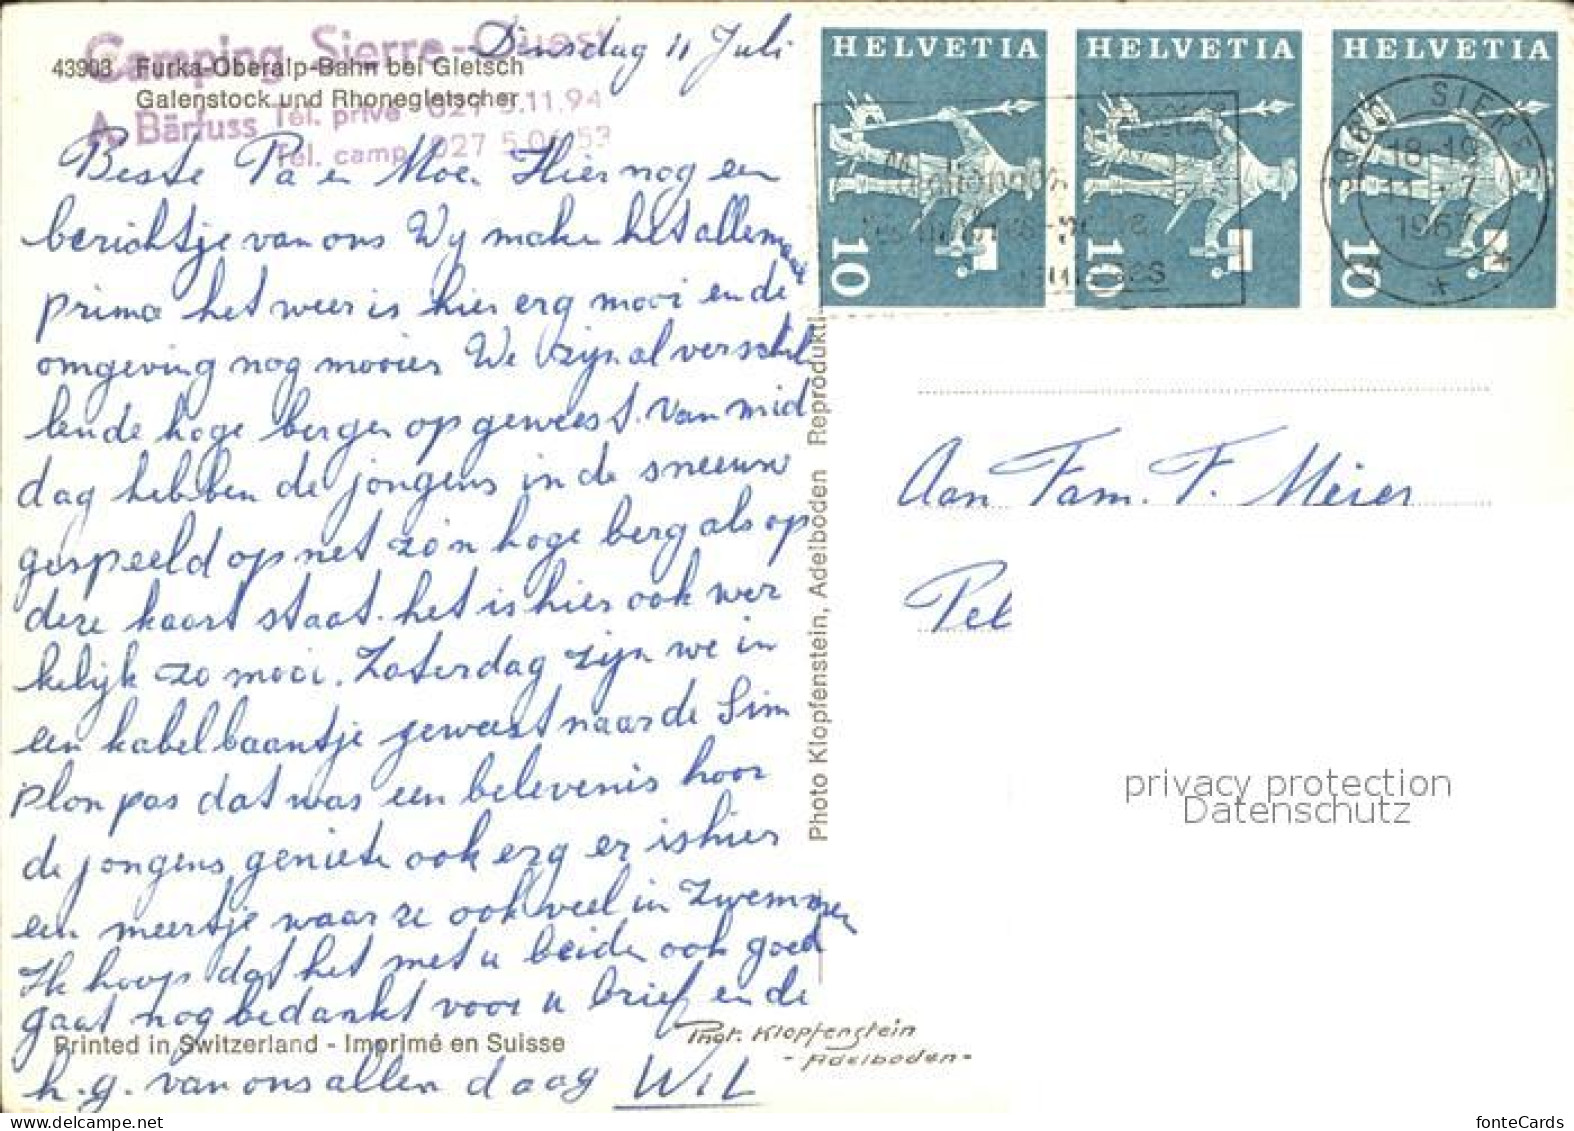 Camping Sierre-Ouest
Dinsdag 11 Juli
43903 Furka-Oberalp-Bahn bei Gletsch
Galenstock und Rhonegletscher
A. Bärfuss Tél. privé 027 5.11.94
Tél. camp. 027 5.06.53
Beste Pa en Moe. Hier nog een
berichtje van ons Wy maken het allemaal
prima het weer is hier erg mooi en de
omgeving nog mooier We zijn al verschil
lende hoge bergen op geweest. Van mid
dag hebben de jongens in de sneeuw
gespeeld op net zo'n hoge berg als op
deze kaart staat. het is hier ook wer
kelijk zo mooi. Zaterdag zijn we in
een kabelbaantje geweest naar de Sim
plon pas dat was een belevenis hoor
de jongens geniete ook erg er is hier
een meertje waar ze ook veel in zwemmen
Ik hoop dat het met u beide ook goed
gaat nog bedankt voor u brief en de
Printed in Switzerland - Imprimé en Suisse
h.g. van ons allen daag Wil
Photo Klopfenstein, Adelboden Reprodukti
Phot. Klopfenstein
- Adelboden -
HELVETIA
10
HELVETIA
10
HELVETIA
10
3960 SIERRE
18-19
11.-7
196
Aan Fam. F. Meier
Pet
privacy protection
Datenschutz
fonteCards